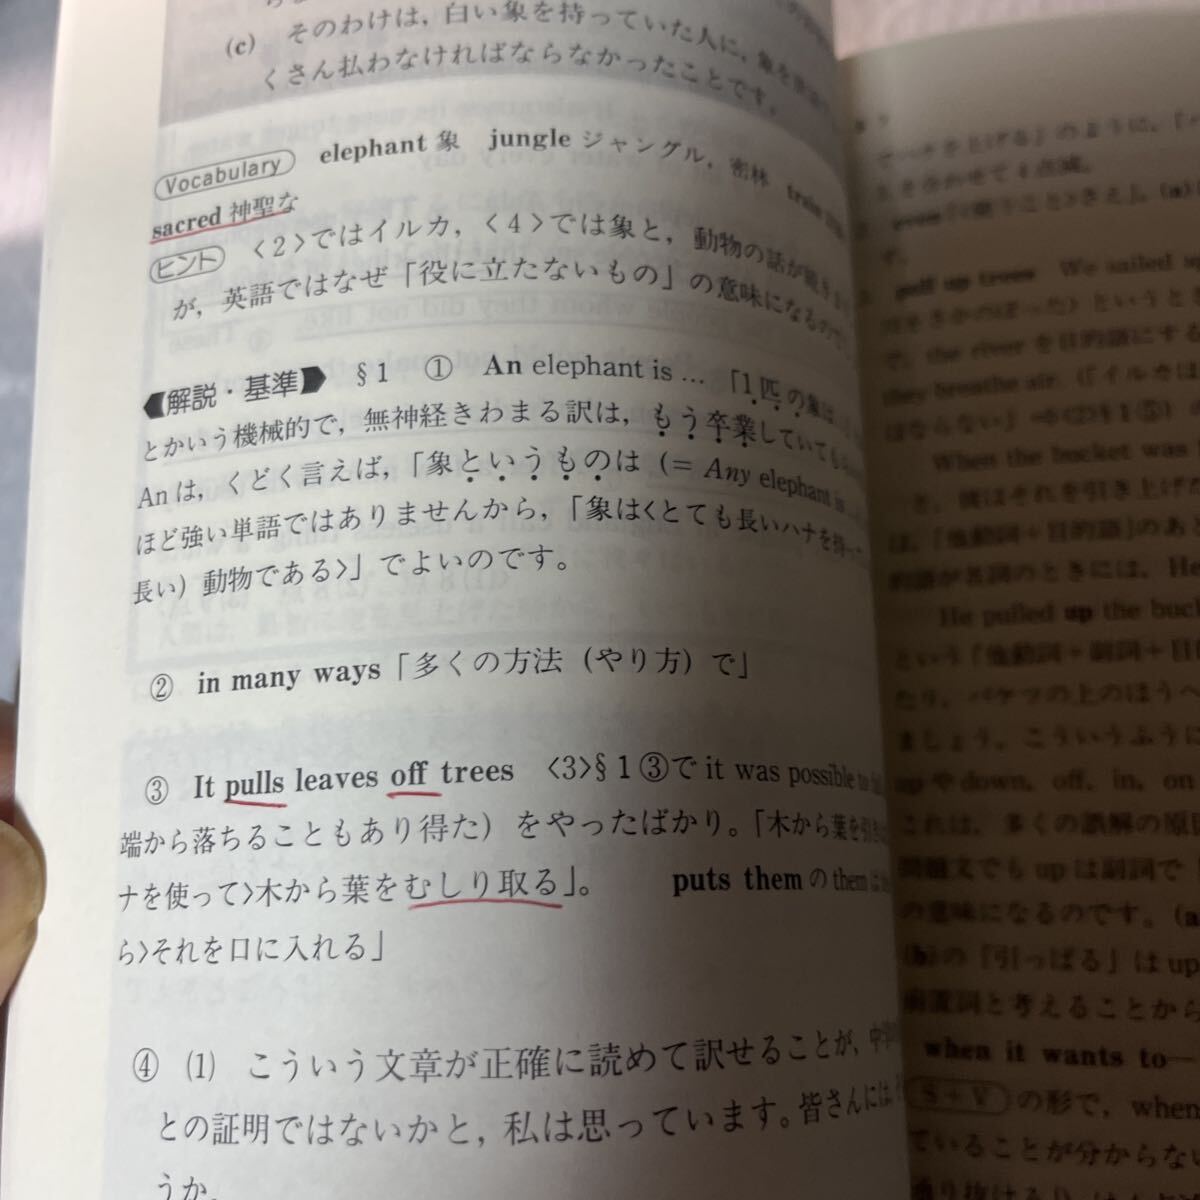 (c) そのわけは，白い象を持っていた人に，象を
くさん払わなければならなかったことです。
Vocabulary elephant 象 jungle ジャングル，密林 train
sacred 神聖な
ヒント 〈2〉ではイルカ，〈4〉では象と，動物の話が続きま
が，英語ではなぜ「役に立たないもの」の意味になるので
解説・基準 §1 ① An elephant is … 「1匹の象は
とかいう機械的で，無神経きわまる訳は，もう卒業していても
Anは，くどく言えば，「象というものは (= Any elephant is
ほど強い単語ではありませんから，「象は〈とても長いハナを持っ
長い）動物である〉」でよいのです。
② in many ways「多くの方法（やり方）で」
③ It pulls leaves off trees 〈3〉§1③で it was possible to
端から落ちることもあり得た）をやったばかり。「木から葉を引き
ナを使って〉木から葉をむしり取る」。 puts them の them は
ら〉それを口に入れる」
④ (1) こういう文章が正確に読めて訳せることが，中学
との証明ではないかと，私は思っています。皆さんには，
うか。
でハナを上げる」のように，「
ろを合わせて4点減。
す。
pull up trees We sailed up
川をさかのぼった）というとき
で，the river を目的語にする
they breathe air.（「イルカは
はならない」⇨〈2〉§1⑤）
When the bucket was
き，彼はそれを引き上げた
は，「他動詞＋目的語」のあと
的語が名詞のときには，He
He pulled up the buc
という「他動詞＋副詞＋目
たり，バケツの上のほうへ
ましょう。こういうふうに
up や down, off, in, on
これは，多くの誤解の原因
問題文でも up は副詞で
の意味になるのです。(a
(b)の「引っぱる」は up
前置詞と考えることから
when it wants to—
S＋V の形で，when
ていることが分からない